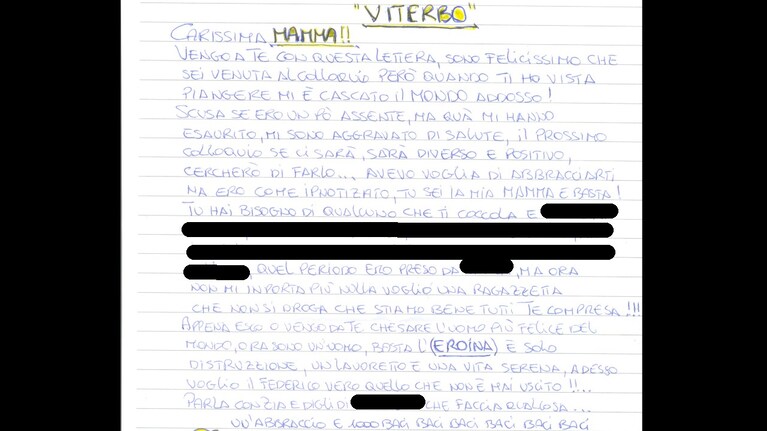 "VITERBO"
CARISSIMA MAMMA!!
VENGO A TE CON QUESTA LETTERA, SONO FELICISSIMO CHE
SEI VENUTA AL COLLOQUIO PERÒ QUANDO TI HO VISTA
PIANGERE MI È CASCATO IL MONDO ADDOSSO!
SCUSA SE ERO UN PÒ ASSENTE, MA QUÀ MI HANNO
ESAURITO, MI SONO AGGRAVATO DI SALUTE, IL PROSSIMO
COLLOQUIO SE CI SARÀ, SARÀ DIVERSO E POSITIVO,
CERCHERÒ DI FARLO... AVEVO VOGLIA DI ABBRACCIARTI
MA ERO COME IPNOTIZATO, TU SEI LA MIA MAMMA E BASTA!
TU HAI BISOGNO DI QUALCUNO CHE TI COCCOLA E
, QUEL PERIODO ERO PRESO DA , MA ORA
NON MI INPORTA PIÙ NULLA VOGLIO UNA RAGAZZETTA
CHE NON SI DROGA CHE STIAMO BENE TUTTI TE COMPRESA!!!
APPENA ESCO O VENGO DA TE CHE SARE L'UOMO PIÙ FELICE DEL
MONDO, ORA SONO UN UOMO, BASTA L'(EROÍNA) È SOLO
DISTRUZZIONE, UN LAVORETTO E UNA VITA SERENA, ADESSO
VOGLIO IL FEDERICO VERO QUELLO CHE NON È MAI USCITO!!...
PARLA CON ZIA E DIGLI DI CHE FACCIA QUALCOSA...
UN'ABBRACCIO E 1000 BACI BACI BACI BACI BACI BACI